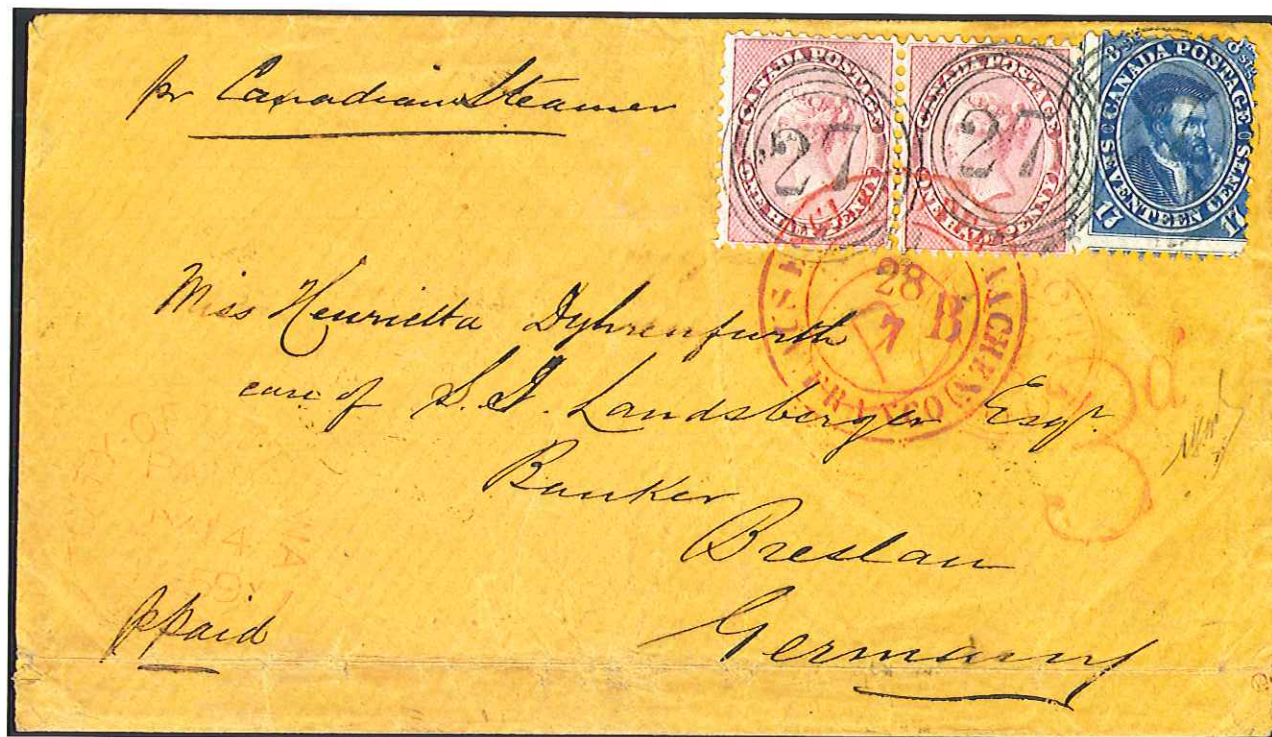 pr Canadian Steamer
CANADA POSTAGE
ONE HALF PENNY
27
CANADA POSTAGE
ONE HALF PENNY
27
8 CANADA POSTAGE 8
SEVENTEEN CENTS
17 17
28
7
B
AACHEN
3d
Miss Henrietta Dyhrenfurth
care of S. I. Landsberger Esqr.
Banker
Breslau
Germany
ppaid